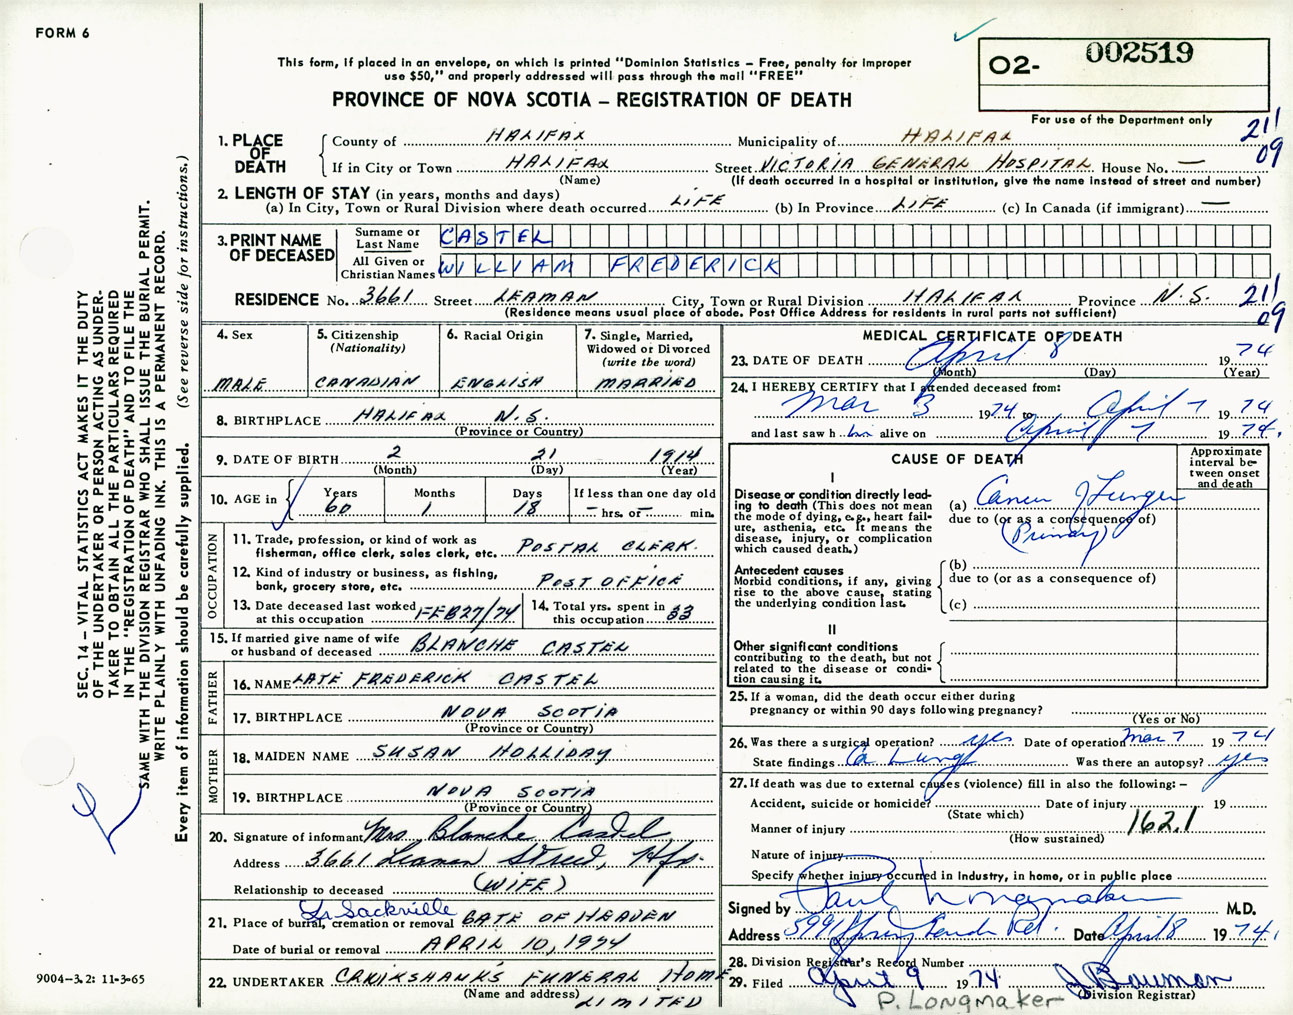 FORM 6
This form, if placed in an envelope, on which is printed "Dominion Statistics – Free, penalty for improper
use $50," and properly addressed will pass through the mail "FREE"
PROVINCE OF NOVA SCOTIA – REGISTRATION OF DEATH
O2- 002519
For use of the Department only
211
09
SEC. 14 – VITAL STATISTICS ACT MAKES IT THE DUTY
OF THE UNDERTAKER OR PERSON ACTING AS UNDER-
TAKER TO OBTAIN ALL THE PARTICULARS REQUIRED
IN THE "REGISTRATION OF DEATH" AND TO FILE THE
SAME WITH THE DIVISION REGISTRAR WHO SHALL ISSUE THE BURIAL PERMIT.
WRITE PLAINLY WITH UNFADING INK. THIS IS A PERMANENT RECORD.
Every item of information should be carefully supplied. (See reverse side for instructions.)
1. PLACE OF DEATH
County of HALIFAX Municipality of HALIFAX
If in City or Town HALIFAX Street VICTORIA GENERAL HOSPITAL House No. —
(Name) (If death occurred in a hospital or institution, give the name instead of street and number)
2. LENGTH OF STAY (in years, months and days)
(a) In City, Town or Rural Division where death occurred LIFE (b) In Province LIFE (c) In Canada (if immigrant) —
3. PRINT NAME OF DECEASED
Surname or Last Name CASTEL
All Given or Christian Names WILLIAM FREDERICK
RESIDENCE No. 3661 Street LEAMAN City, Town or Rural Division HALIFAX Province N.S.
(Residence means usual place of abode. Post Office Address for residents in rural parts not sufficient)
211
09
4. Sex
MALE
5. Citizenship
(Nationality)
CANADIAN
6. Racial Origin
ENGLISH
7. Single, Married,
Widowed or Divorced
(write the word)
MARRIED
8. BIRTHPLACE HALIFAX N.S.
(Province or Country)
9. DATE OF BIRTH 2 21 1914
(Month) (Day) (Year)
10. AGE in
Years Months Days If less than one day old
60 1 18 – hrs. or – min.
OCCUPATION
11. Trade, profession, or kind of work as
fisherman, office clerk, sales clerk, etc. POSTAL CLERK.
12. Kind of industry or business, as fishing,
bank, grocery store, etc. POST OFFICE
13. Date deceased last worked
at this occupation FEB 27/74
14. Total yrs. spent in
this occupation 33
15. If married give name of wife
or husband of deceased BLANCHE CASTEL
FATHER
16. NAME LATE FREDERICK CASTEL
17. BIRTHPLACE NOVA SCOTIA
(Province or Country)
MOTHER
18. MAIDEN NAME SUSAN HOLLIDAY
19. BIRTHPLACE NOVA SCOTIA
(Province or Country)
20. Signature of informant Mrs. Blanche Castel
Address 3661 Leaman Street, Hfx.
Relationship to deceased (WIFE)
Lr Sackville
21. Place of burial, cremation or removal GATE OF HEAVEN
Date of burial or removal APRIL 10, 1974
22. UNDERTAKER CRUIKSHANKS FUNERAL HOME
(Name and address) LIMITED
9004-3.2: 11-3-65
MEDICAL CERTIFICATE OF DEATH
23. DATE OF DEATH April 8 19 74
(Month) (Day) (Year)
24. I HEREBY CERTIFY that I attended deceased from:
Mar 3 1974 to April 7 19 74
and last saw h im alive on April 7 19 74.
CAUSE OF DEATH
Approximate
interval be-
tween onset
and death
I
Disease or condition directly lead-
ing to death (This does not mean
the mode of dying, e.g., heart fail-
ure, asthenia, etc. It means the
disease, injury, or complication
which caused death.)
(a) Cancer of Lung
due to (or as a consequence of)
(Primary)
Antecedent causes
Morbid conditions, if any, giving
rise to the above cause, stating
the underlying condition last.
(b)
due to (or as a consequence of)
(c)
II
Other significant conditions
contributing to the death, but not
related to the disease or condi-
tion causing it.
25. If a woman, did the death occur either during
pregnancy or within 90 days following pregnancy?
(Yes or No)
26. Was there a surgical operation? yes Date of operation Mar 7 19 74
State findings Ca Lung Was there an autopsy? yes
27. If death was due to external causes (violence) fill in also the following: –
Accident, suicide or homicide? Date of injury 19
(State which)
Manner of injury 162.1
(How sustained)
Nature of injury
Specify whether injury occurred in Industry, in home, or in public place
Signed by Paul Longmaker M.D.
Address 5991 Spring Garden Rd. Date April 8 19 74.
28. Division Registrar's Record Number
29. Filed April 9 19 74. J Bauman
(Division Registrar)
P. LONGMAKER